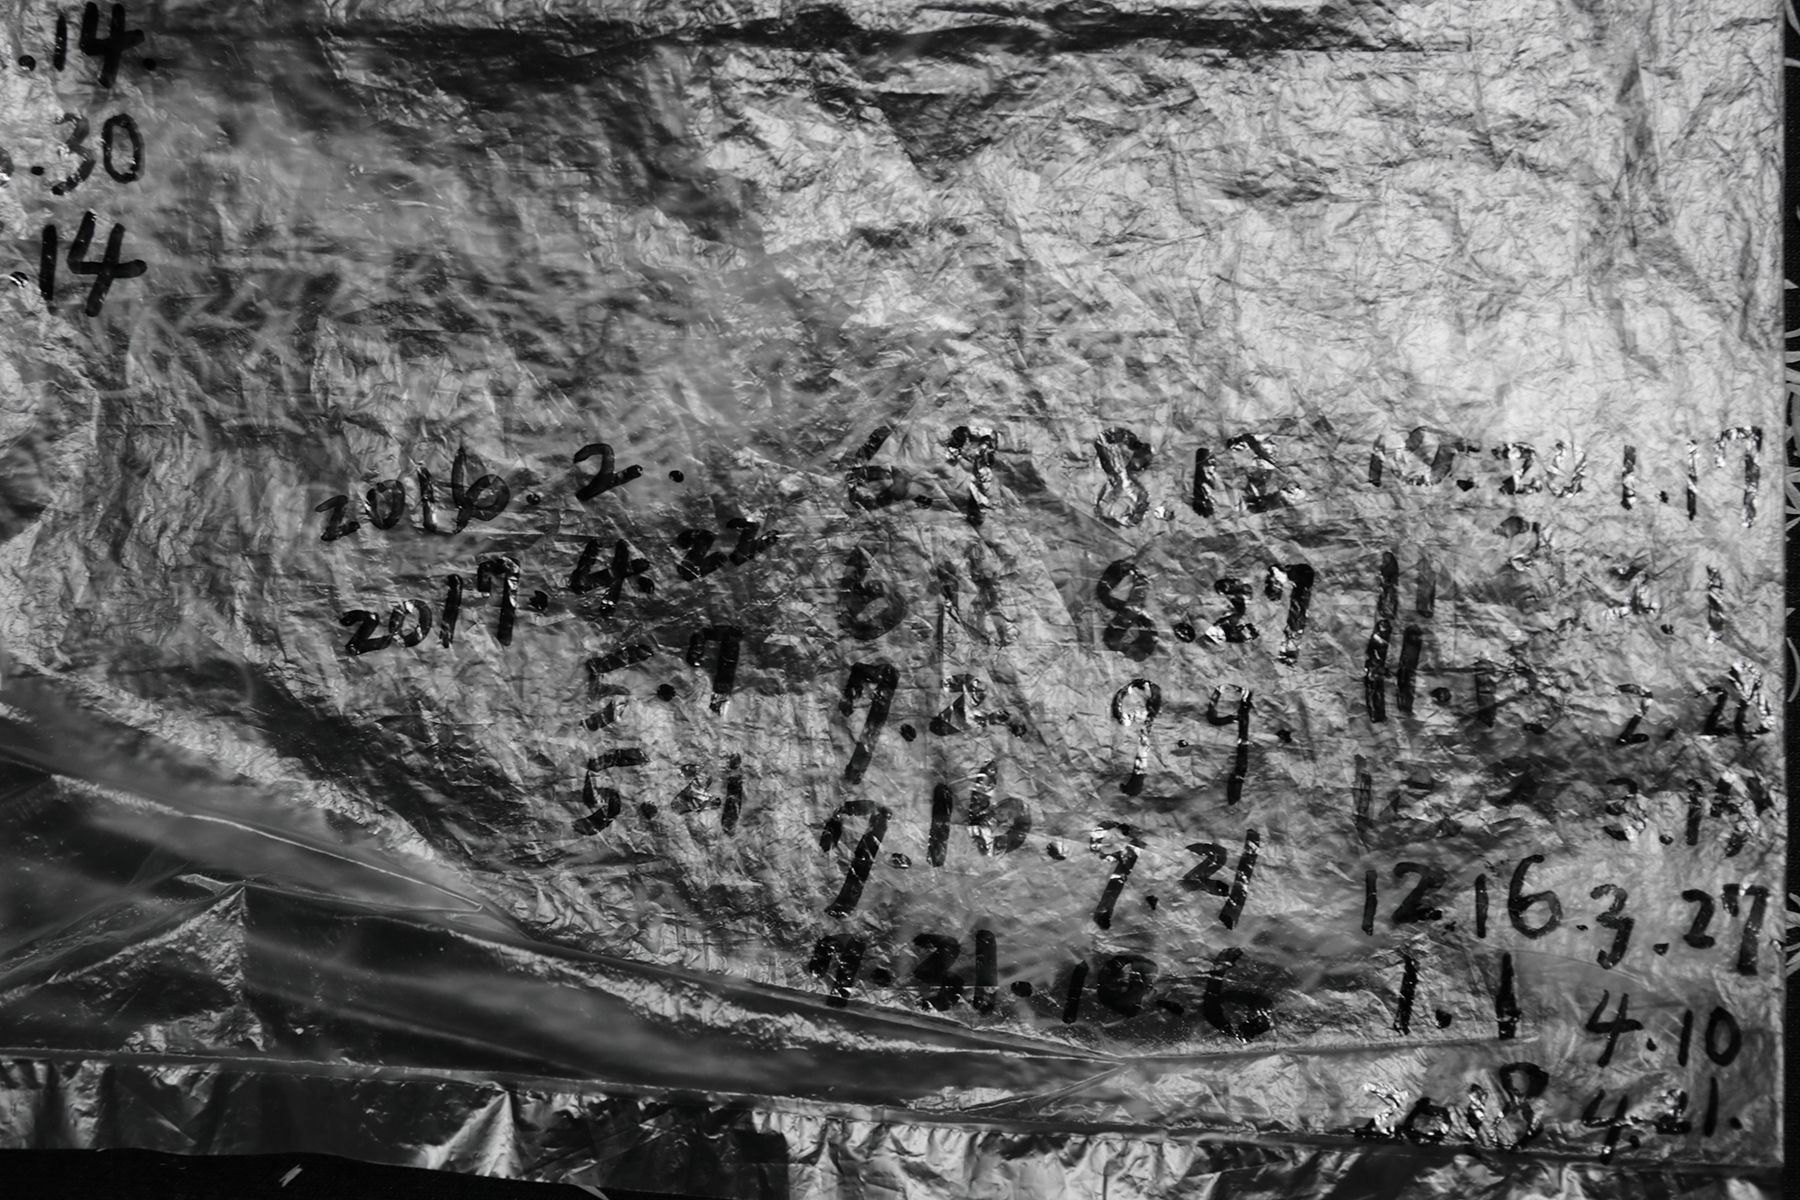 .14.
.30
.14
2016.2.
2017.4.22
5.7
5.21
6.9
7.2.
7.16.
7.31.
8.12
8.27
9.4.
9.21
10.6
10.20
11.1
12.16.
1.1
2018
1.17
2.28
3.27
4.10
4.21.